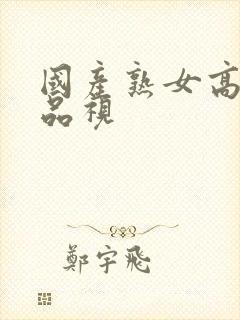 國產熟女高
品視
鄭宇飛